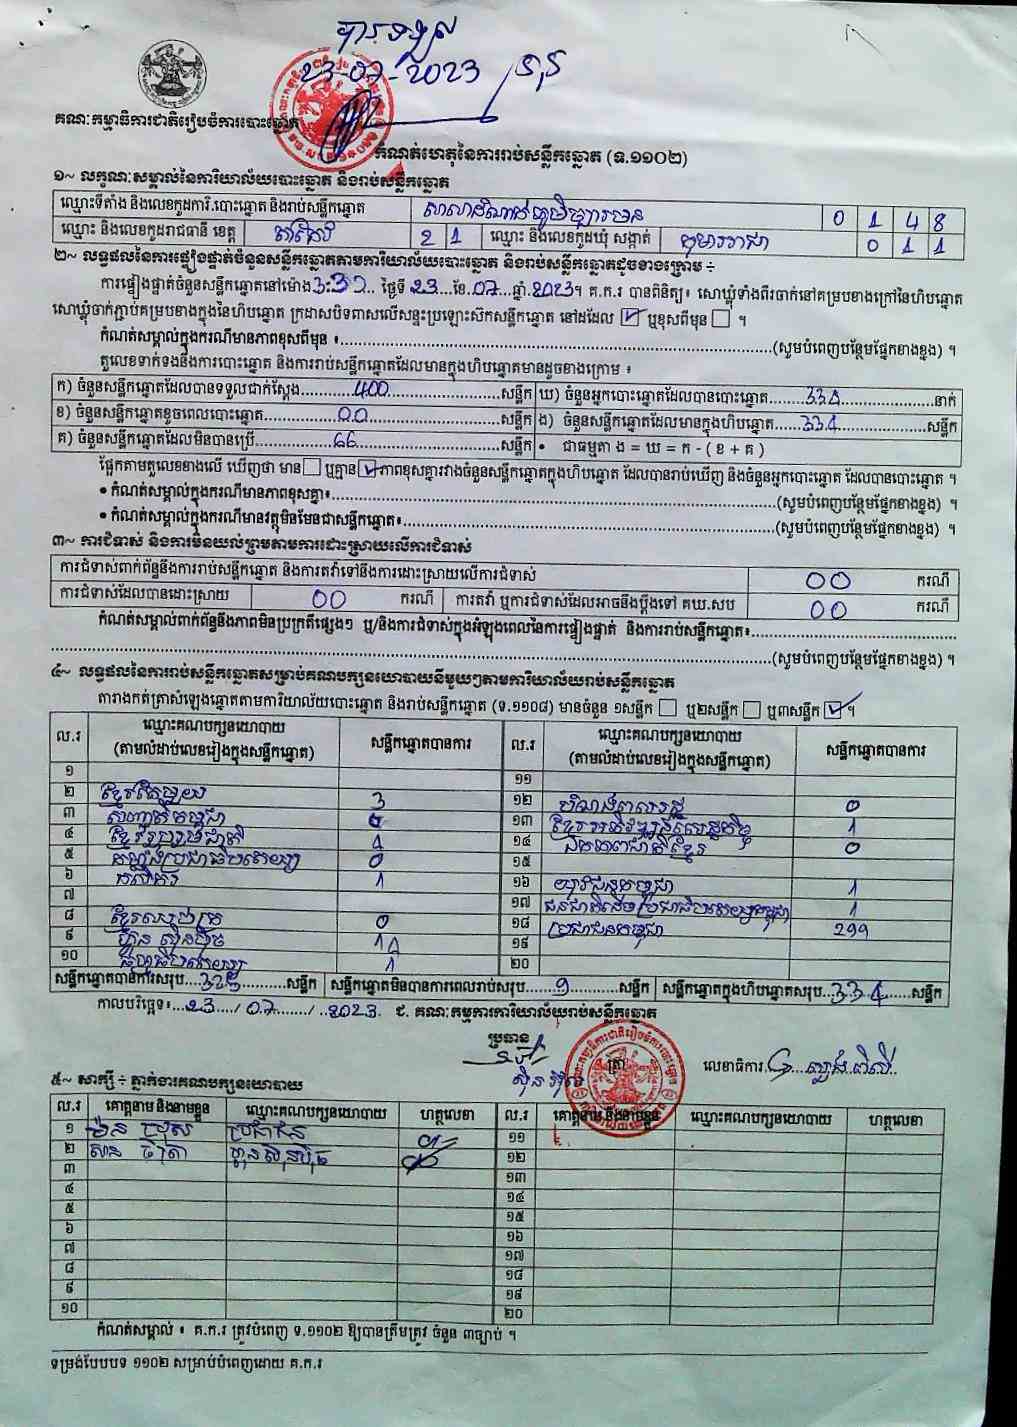 23-07-2023
គណៈកម្មាធិការជាតិរៀបចំការបោះឆ្នោត
កំណត់ហេតុនៃការរាប់សន្លឹកឆ្នោត (ទ.១១០២)
១~ លក្ខណៈសម្គាល់នៃការិយាល័យបោះឆ្នោត និងរាប់សន្លឹកឆ្នោត
ឈ្មោះទីតាំង និងលេខកូដការិ.បោះឆ្នោត និងរាប់សន្លឹកឆ្នោត 0 1 4 8
ឈ្មោះ និងលេខកូដរាជធានី ខេត្ត តាកែវ 2 1 ឈ្មោះ និងលេខកូដឃុំ សង្កាត់ 0 1 1
២~ លទ្ធផលនៃការផ្ទៀងផ្ទាត់ចំនួនសន្លឹកឆ្នោតតាមការិយាល័យបោះឆ្នោត និងរាប់សន្លឹកឆ្នោតដូចខាងក្រោម ÷
ការផ្ទៀងផ្ទាត់ចំនួនសន្លឹកឆ្នោតនៅម៉ោង ថ្ងៃទី 23 ខែ 07 ឆ្នាំ 2023។ គ.ក.រ បានពិនិត្យ៖ សោឃ្លុំទាំងពីរចាក់នៅគម្របខាងក្រៅនៃហិបឆ្នោត
សោឃ្លុំចាក់ភ្ជាប់គម្របខាងក្នុងនៃហិបឆ្នោត ក្រដាសបិទពាសលើសន្ទះប្រឡោះសឹកសន្លឹកឆ្នោត នៅដដែល ☑ ឬខុសពីមុន ☐ ។
កំណត់សម្គាល់ក្នុងករណីមានភាពខុសពីមុន ៖..........(សូមបំពេញបន្ថែមផ្នែកខាងខ្នង) ។
តួលេខទាក់ទងនឹងការបោះឆ្នោត និងការរាប់សន្លឹកឆ្នោតដែលមានក្នុងហិបឆ្នោតមានដូចខាងក្រោម ៖
ក) ចំនួនសន្លឹកឆ្នោតដែលបានទទួលជាក់ស្តែង 400 សន្លឹក ឃ) ចំនួនអ្នកបោះឆ្នោតដែលបានបោះឆ្នោត 334 នាក់
ខ) ចំនួនសន្លឹកឆ្នោតខូចពេលបោះឆ្នោត 00 សន្លឹក ង) ចំនួនសន្លឹកឆ្នោតដែលមានក្នុងហិបឆ្នោត 334 សន្លឹក
គ) ចំនួនសន្លឹកឆ្នោតដែលមិនបានប្រើ 66 សន្លឹក • ជាធម្មតា ង = ឃ = ក - ( ខ + គ )
ផ្អែកតាមតួលេខខាងលើ ឃើញថា មាន ☐ ឬគ្មាន ☑ ភាពខុសគ្នារវាងចំនួនសន្លឹកឆ្នោតក្នុងហិបឆ្នោត ដែលបានរាប់ឃើញ និងចំនួនអ្នកបោះឆ្នោត ដែលបានបោះឆ្នោត ។
• កំណត់សម្គាល់ក្នុងករណីមានភាពខុសគ្នា៖..........(សូមបំពេញបន្ថែមផ្នែកខាងខ្នង) ។
• កំណត់សម្គាល់ក្នុងករណីមានវត្ថុមិនមែនជាសន្លឹកឆ្នោត៖..........(សូមបំពេញបន្ថែមផ្នែកខាងខ្នង) ។
៣~ ការជំទាស់ និងការមិនយល់ព្រមតាមការដោះស្រាយលើការជំទាស់
ការជំទាស់ពាក់ព័ន្ធនឹងការរាប់សន្លឹកឆ្នោត និងការតវ៉ាទៅនឹងការដោះស្រាយលើការជំទាស់ 00 ករណី
ការជំទាស់ដែលបានដោះស្រាយ 00 ករណី ការតវ៉ា ឬការជំទាស់ដែលអាចនឹងប្តឹងទៅ គឃ.សប 00 ករណី
កំណត់សម្គាល់ពាក់ព័ន្ធនឹងភាពមិនប្រក្រតីផ្សេងៗ ឬ/និងការជំទាស់ក្នុងអំឡុងពេលនៃការផ្ទៀងផ្ទាត់ និងការរាប់សន្លឹកឆ្នោត៖..........
..........(សូមបំពេញបន្ថែមផ្នែកខាងខ្នង) ។
៤~ លទ្ធផលនៃការរាប់សន្លឹកឆ្នោតសម្រាប់គណបក្សនយោបាយនីមួយៗតាមការិយាល័យរាប់សន្លឹកឆ្នោត
តារាងកត់ត្រាសំឡេងឆ្នោតតាមការិយាល័យបោះឆ្នោត និងរាប់សន្លឹកឆ្នោត (ទ.១១០៨) មានចំនួន ១សន្លឹក ☐ ឬ២សន្លឹក ☐ ឬ៣សន្លឹក ☑ ។
ល.រ ឈ្មោះគណបក្សនយោបាយ (តាមលំដាប់លេខរៀងក្នុងសន្លឹកឆ្នោត) សន្លឹកឆ្នោតបានការ ល.រ ឈ្មោះគណបក្សនយោបាយ (តាមលំដាប់លេខរៀងក្នុងសន្លឹកឆ្នោត) សន្លឹកឆ្នោតបានការ
១ ១១
២ ខ្មែរតែមួយ 3 ១២ 0
៣ ១៣ ខ្មែរអភិវឌ្ឍន៍សេដ្ឋកិច្ច 1
៤ ១៤ ឯកភាពជាតិខ្មែរ 0
៥ កម្លាំងប្រជាធិបតេយ្យ 0 ១៥
៦ កសិករ 1 ១៦ យុវជនកម្ពុជា 1
៧ ១៧ ជនជាតិដើមប្រជាធិបតេយ្យកម្ពុជា 1
៨ ខ្មែរឈប់ក្រ 0 ១៨ ប្រជាជនកម្ពុជា 299
៩ ហ្វ៊ុនស៊ិនប៉ិច ១៩
១០ 1 ២០
សន្លឹកឆ្នោតបានការសរុប 325 សន្លឹក សន្លឹកឆ្នោតមិនបានការពេលរាប់សរុប 9 សន្លឹក សន្លឹកឆ្នោតក្នុងហិបឆ្នោតសរុប 334 សន្លឹក
កាលបរិច្ឆេទ៖ 23 / 07 / 2023. ជ. គណៈកម្មការការិយាល័យរាប់សន្លឹកឆ្នោត
ប្រធាន
ត្រា លេខាធិការ
៥~ សាក្សី ÷ ភ្នាក់ងារគណបក្សនយោបាយ
ល.រ គោត្តនាម និងនាមខ្លួន ឈ្មោះគណបក្សនយោបាយ ហត្ថលេខា ល.រ គោត្តនាម និងនាមខ្លួន ឈ្មោះគណបក្សនយោបាយ ហត្ថលេខា
១ ប្រជាជន ១១
២ ហ្វ៊ុនស៊ិនប៉ិច ១២
៣ ១៣
៤ ១៤
៥ ១៥
៦ ១៦
៧ ១៧
៨ ១៨
៩ ១៩
១០ ២០
កំណត់សម្គាល់ ៖ គ.ក.រ ត្រូវបំពេញ ទ.១១០២ ឱ្យបានត្រឹមត្រូវ ចំនួន ៣ច្បាប់ ។
ទម្រង់បែបបទ ១១០២ សម្រាប់បំពេញដោយ គ.ក.រ